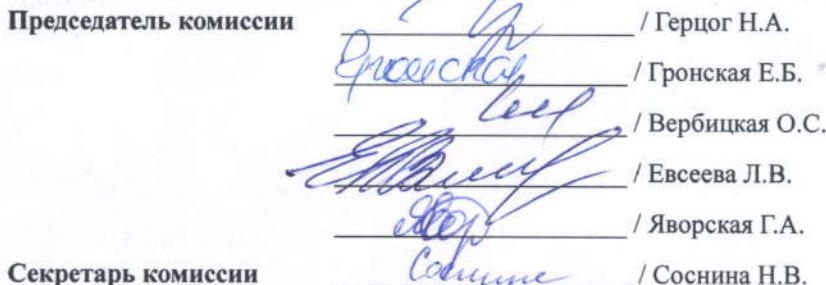 Председатель комиссии / Герцог Н.А.
Гронская / Гронская Е.Б.
/ Вербицкая О.С.
/ Евсеева Л.В.
/ Яворская Г.А.
Секретарь комиссии Соснина / Соснина Н.В.